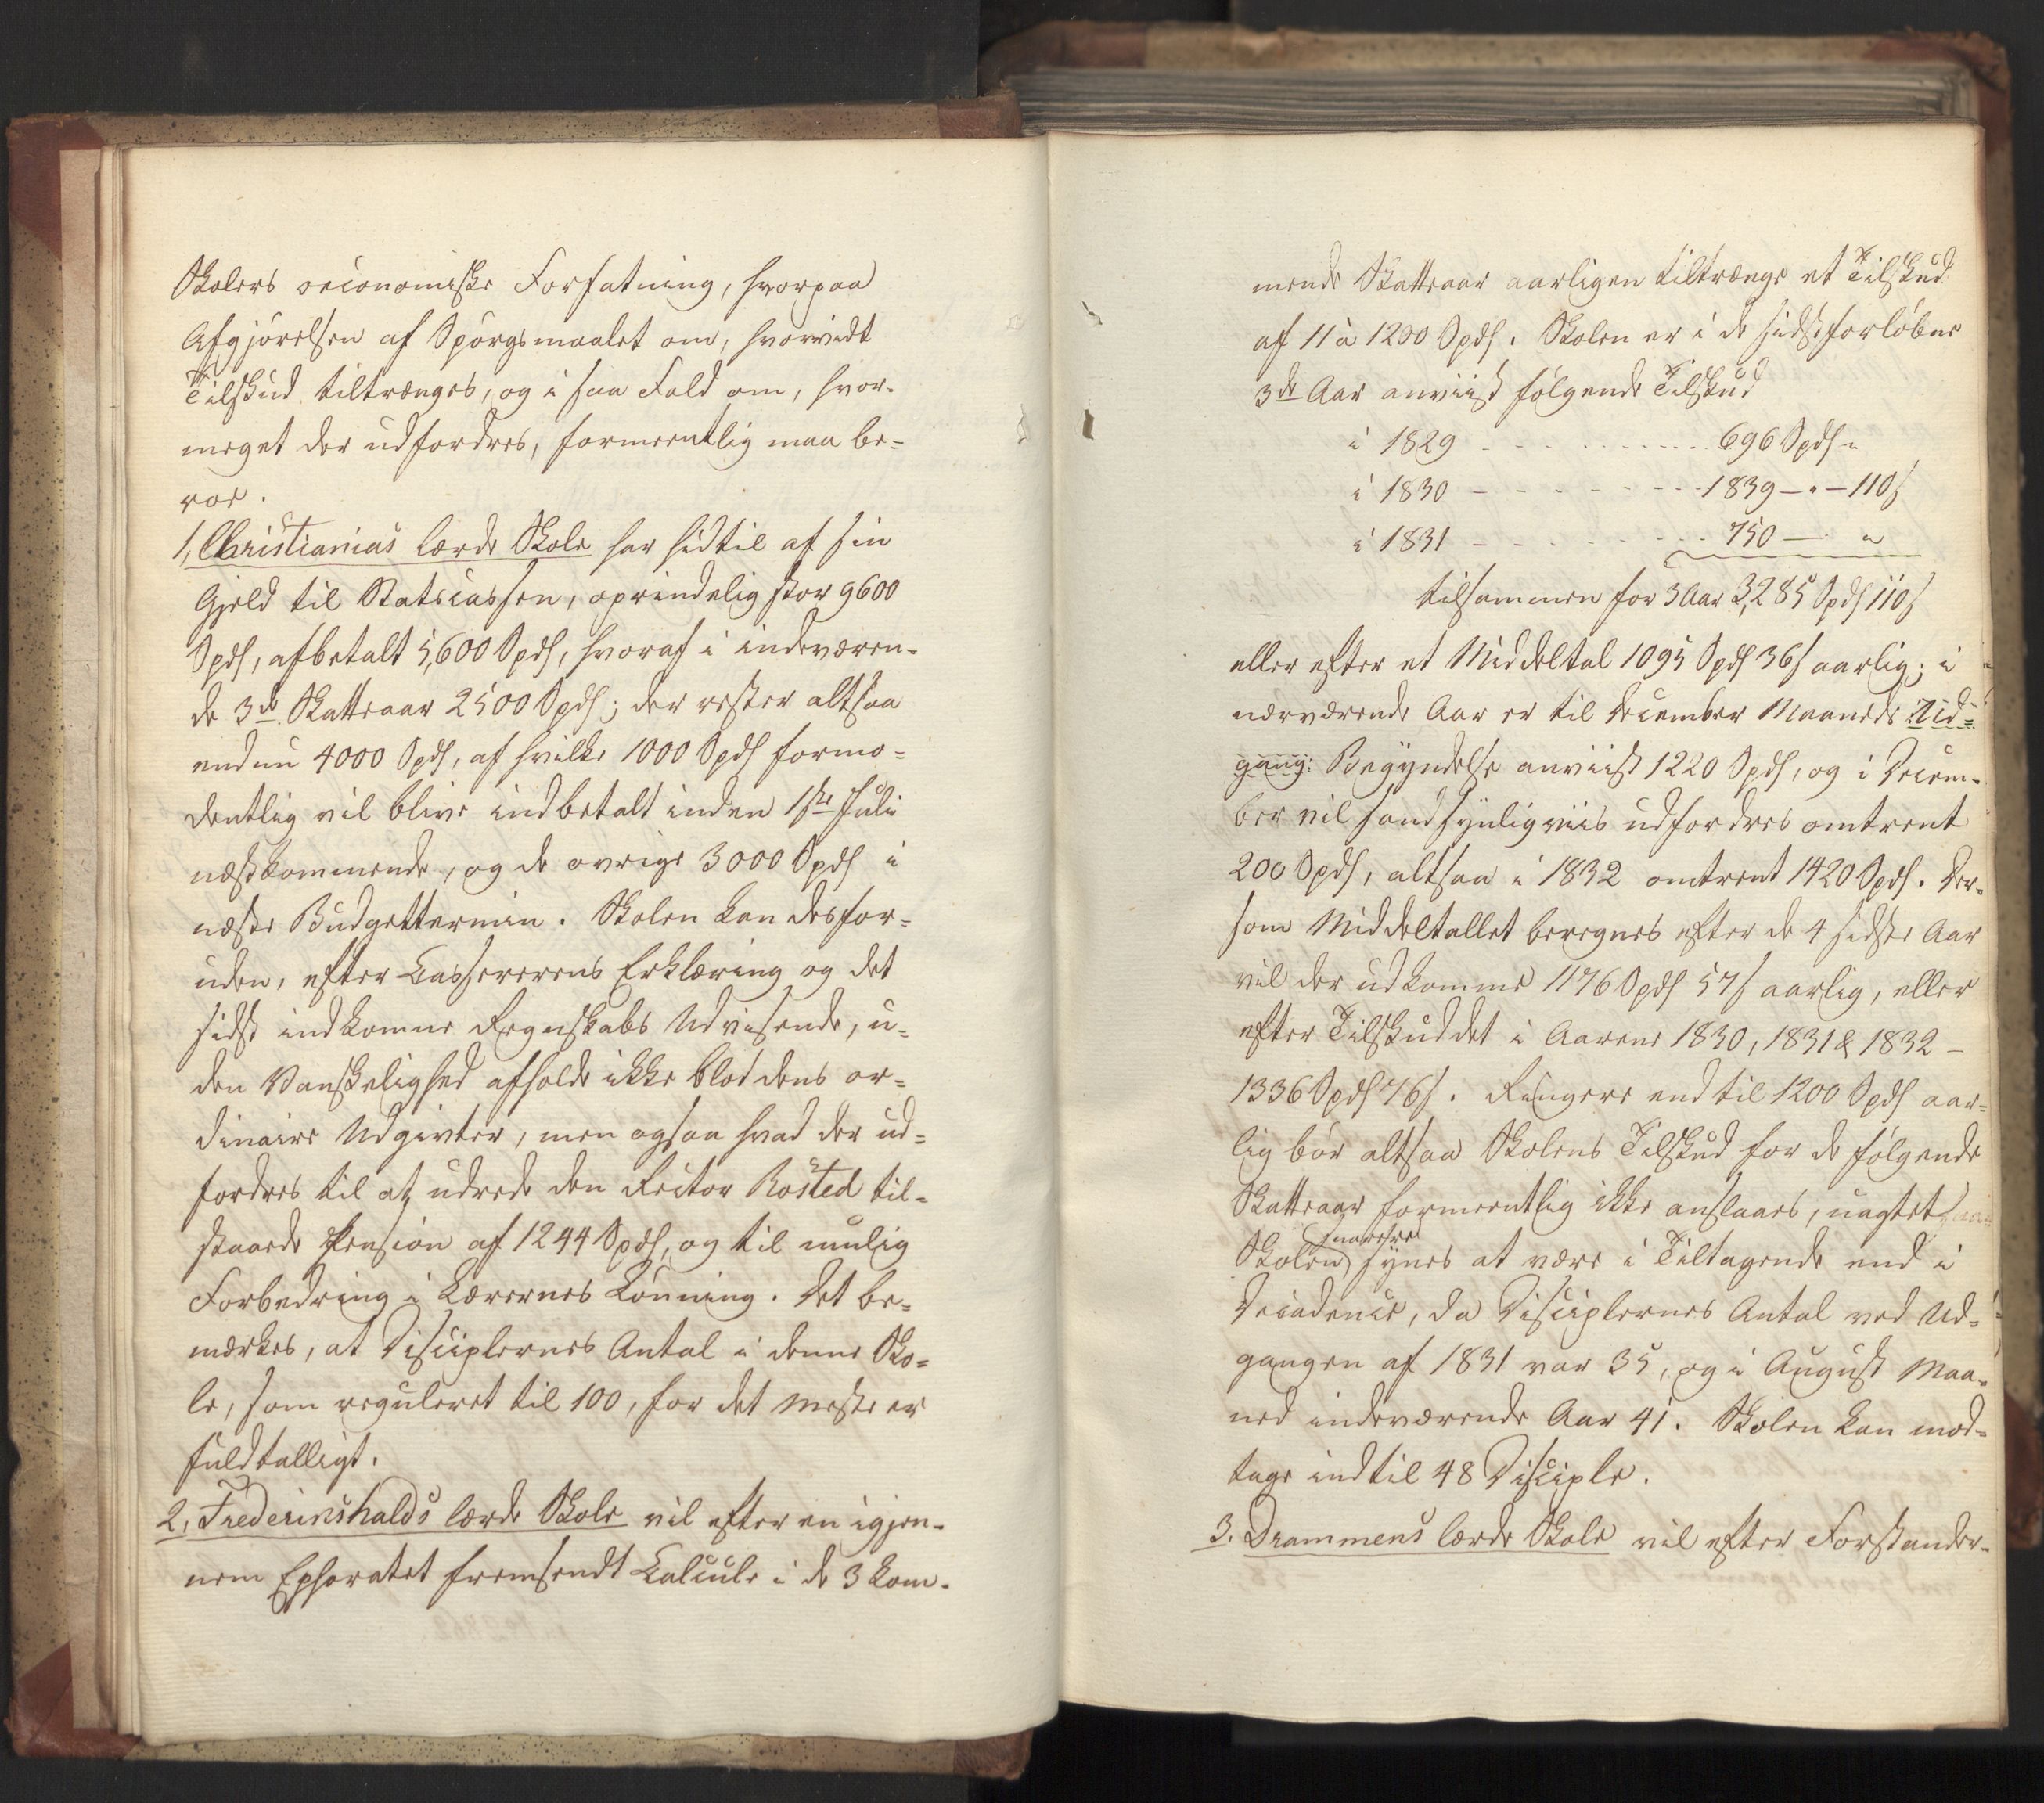 Skolers oeconomiske Forfatning, hvorpaa
Afgjørelsen af Spørgsmaalet om, hvorvidt
Tilskud tiltrænges, og i saa Fald om, hvor-
meget der udfordres, formeentlig maa be-
roe.
1, Christianias lærde Skole har hidtil af sin
Gjeld til Statscassen, oprindelig stor 9600
Spds, afbetalt 5,600 Spds, hvoraf i indeværen-
de 3de Skatteaar 2500 Spds; der rester altsaa
endnu 4000 Spds, af hvilke 1000 Spds formo-
dentlig vil blive indbetalt inden 1ste Juli
næstkommende, og de øvrige 3000 Spds i
næste Budgettermin. Skolen kan desfor-
uden, efter Cassererens Erklæring og det
sidst indkomne Regnskabs Udvisende, u-
den Vanskelighed afholde ikke blot dens or-
dinaire Udgivter, men ogsaa hvad der ud-
fordres til at udrede den Rector Rosted til-
staaede Pension af 1244 Spds, og til mulig
Forbedring i Lærernes Lønning. Det be-
mærkes, at Disciplernes Antal i denne Sko-
le, som reguleret til 100, for det meste er
fuldtalligt.
2, Fredericshalds lærde Skole vil efter en igjen-
nem Ephoratet fremsendt Calcule i de 3 kom-
mende Skatteaar aarligen tiltrænge et Tilskud
af 11 à 1200 Spds. Skolen er i de sidstforløbne
3de Aar anviist følgende Tilskud
i 1829 - - - - - - 696 Spds "
i 1830 - - - - - - 1839 — " — 110 s
i 1831 - - - - - - 750 — "
tilsammen for 3 Aar 3,285 Spds 110 s
eller efter et Middeltal 1095 Spds 36 s aarlig; i
nærværende Aar er til December Maaneds Ud-
gang: Begyndelse anviist 1220 Spds, og i Decem-
ber vil sandsynligviis udfordres omtrent
200 Spds, altsaa i 1832 omtrent 1420 Spds. Der-
som Middeltallet beregnes efter de 4 sidste Aar
vil der udkomme 1176 Spds 57 s aarlig, eller
efter Tilskuddet i Aarene 1830, 1831 & 1832 -
1336 Spds 76 s. Ringere end til 1200 Spds aar-
lig bør altsaa Skolens Tilskud for de følgende
Skatteaar formeentlig ikke anslaaes, uagtet
snarere
Skolen synes at være i Tiltagende end i
Decadence, da Disciplernes Antal ved Ud-
gangen af 1831 var 35, og i August Maa-
ned indeværende Aar 41. Skolen kan mod-
tage indtil 48 Disciple.
3. Drammens lærde Skole vil efter Forstander-